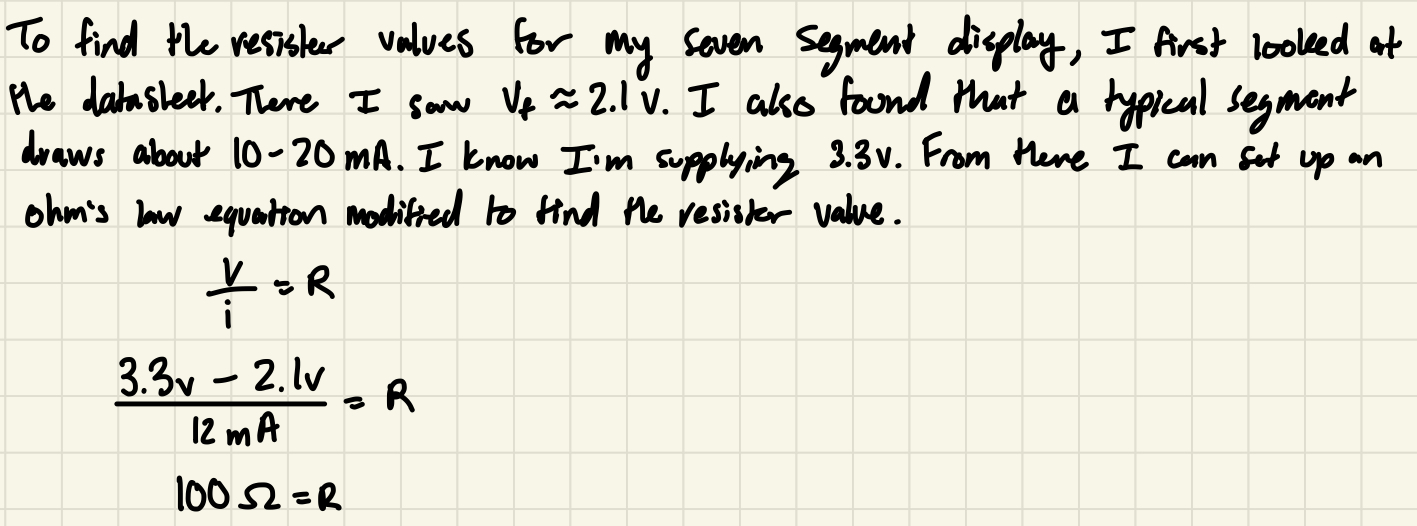 To find the resister values for my seven segment display, I first looked at
the datasheet. There I saw Vf ≈ 2.1 v. I also found that a typical segment
draws about 10-20 mA. I know I'm supplying 3.3v. From there I can set up an
ohm's law equation modified to find the resister value.
V/i = R
(3.3v - 2.1v)/12 mA = R
100 Ω = R